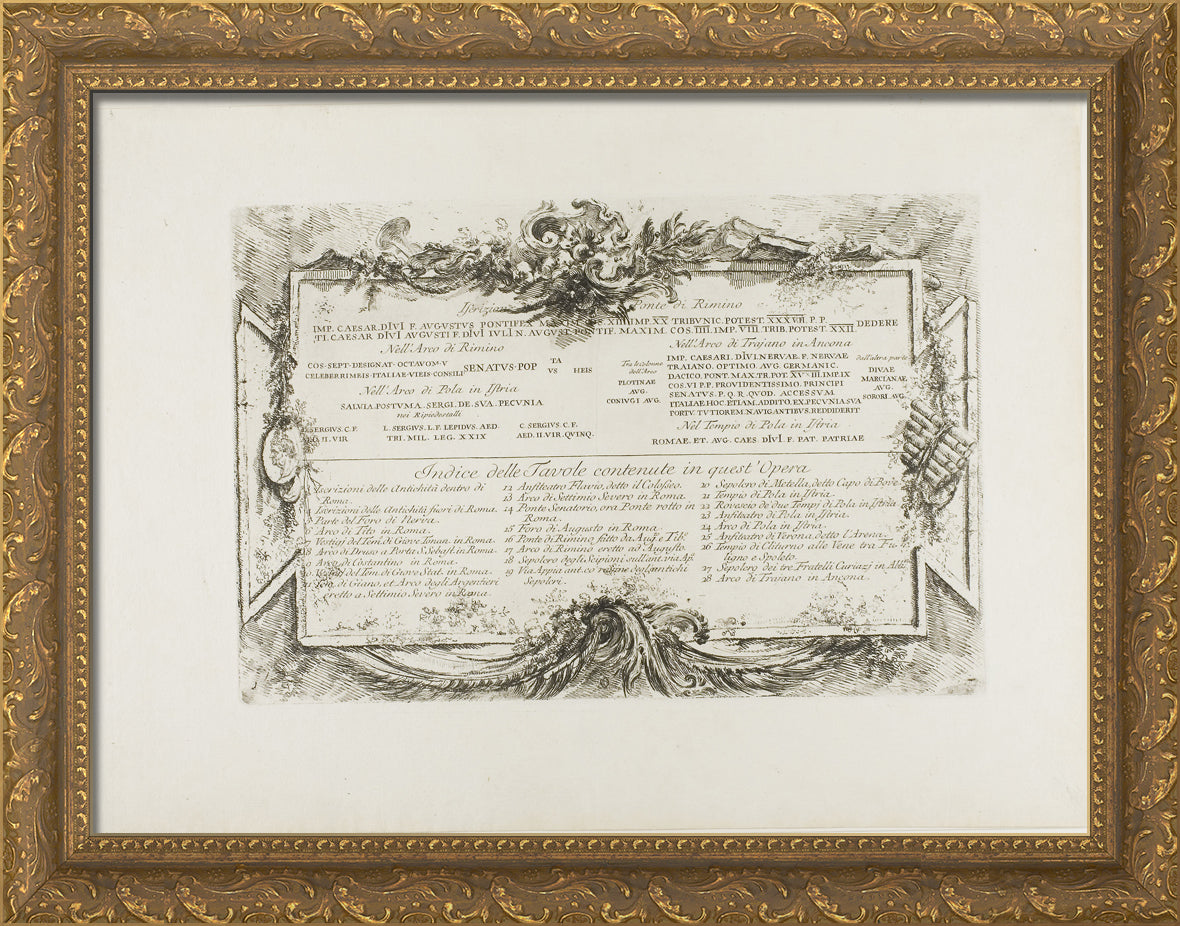 Iscrizion Ponte di Rimino
IMP. CAESAR. DIVI F. AVGVSTVS PONTIFEX MAXIM. XIII IMP. XX TRIBVNIC. POTEST. XXXVII. P. P.
TI. CAESAR DIVI AVGVSTI F. DIVI IVLI N. AVGVST. PONTIF. MAXIM. COS. IIII. IMP. VIII TRIB. POTEST. XXII DEDERE
Nell'Arco di Rimino
COS·SEPT·DESIGNAT·OCTAVOM·V
CELEBERRIMEIS·ITALIAE·VIEIS·CONSILI
SENATVS·POP
TA
VS HEIS
Nell'Arco di Pola in Istria
SALVIA. POSTVMA. SERGI. DE. SVA. PECVNIA
nei Ripiedestalli
SERGIVS. C. F.
II. VIR
L. SERGIVS. L. F. LEPIDVS. AED.
TRI. MIL. LEG. XXIX
C. SERGIVS. C. F.
AED. II. VIR. QVINQ.
Nell'Arco di Trajano in Ancona
Tra le colonne
dell'Arco
PLOTINAE
AVG.
CONIVGI AVG.
IMP. CAESARI. DIVI. NERVAE. F. NERVAE
TRAIANO. OPTIMO. AVG. GERMANIC.
DACICO. PONT. MAX. TR. POT. XVIIII. IMP. IX
COS. VI. P. P. PROVIDENTISSIMO. PRINCIPI
SENATVS. P. Q. R. QVOD. ACCESSVM
ITALIAE. HOC. ETIAM. ADDITO. EX. PECVNIA. SVA
PORTV. TVTIOREM. NAVIGANTIBVS. REDDIDERIT
dall'altra parte
DIVAE
MARCIANAE
AVG.
SORORI AVG.
Nel Tempio di Pola in Istria
ROMAE. ET. AVG. CAES. DIVI. F. PAT. PATRIAE
Indice delle Tavole contenute in quest'Opera
Iscrizioni delle Antichità dentro di
Roma.
Iscrizioni delle Antichità fuori di Roma.
Parte del Foro di Nerva.
6 Arco di Tito in Roma.
7 Vestigi del Tem. di Giove Tonan. in Roma.
8 Arco di Druso a Porta S. Sebast. in Roma.
9 Arco di Costantino in Roma.
Vestigi del Tem. di Giove Stat. in Roma.
11 Tem. di Giano, et Arco degli Argentieri
eretto a Settimio Severo in Roma.
12 Anfiteatro Flavio, detto il Colosseo.
13 Arco di Settimio Severo in Roma.
14 Ponte Senatorio, ora Ponte rotto in
Roma.
15 Foro di Augusto in Roma.
16 Ponte di Rimino fatto da Aug. e Tib.
17 Arco di Rimino eretto ad Augusto.
18 Sepolcro degli Scipioni sull'ant. via Ap.
19 Via Appia ant. co' residui degl'antichi
Sepolcri.
20 Sepolcro di Metella, detto Capo di Bove.
21 Tempio di Pola in Istria.
22 Rovescio de' due Tempi di Pola in Istria
23 Anfiteatro di Pola in Istria.
24 Arco di Pola in Istria.
25 Anfiteatro di Verona detto l'Arena.
26 Tempio di Cliturno alle Vene tra Fu-
ligno e Spoleto.
27 Sepolcro dei tre Fratelli Curiazi in Alb.
28 Arco di Trajano in Ancona.